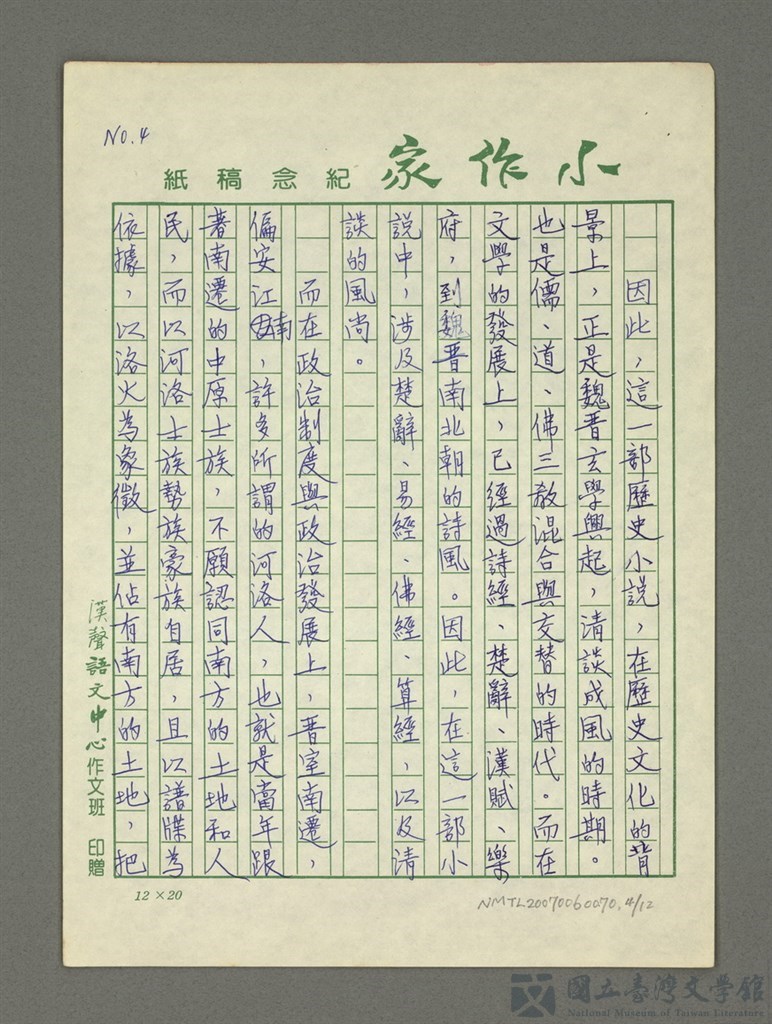 No.4
小作家 紀念稿紙
因此，這一部歷史小說，在歷史文化的背
景上，正是魏晋玄學興起，清談成風的時期。
也是儒、道、佛三教混合與交替的時代。而在
文學的發展上，已經過詩經、楚辭、漢賦、樂
府，到魏晋南北朝的詩風。因此，在這一部小
說中，涉及楚辭、易經、佛經、算經，以及清
談的風尚。
而在政治制度與政治發展上，晋室南遷，
偏安江南，許多所謂的河洛人，也就是當年跟
著南遷的中原士族，不願認同南方的土地和人
民，而以河洛士族勢族豪族自居，且以譜牒為
依據，以洛火為象徵，並佔有南方的土地，把
漢聲語文中心作文班 印贈
12×20
NMTL20070060070.4/12
國立臺灣文學館
National Museum of Taiwan Literature